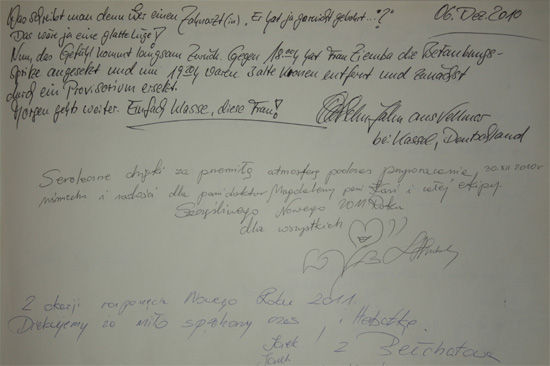 Was schreibt man denn über einen Zahnarzt(in), "Er hat ja garnicht gebohrt...?" 06. Dez. 2010
Das wäre ja eine glatte Lüge!
Nun, das Gefühl kommt langsam zurück. Gegen 18.00 hat Frau Ziemba die Betäubungs-
spritze angesetzt und um 19.00 waren alte Kronen entfernt und zunächst
durch ein Provisorium ersetzt.
Morgen gehts weiter. Einfach Klasse, diese Frau!
aus Vellmar
bei Kassel, Deutschland
Serdeczne dzięki za przemiłą atmosferę podczas 30.XII.2010r
uśmiechu i radości dla pani doktor Magdaleny, pani i całej ekipy
Szczęśliwego Nowego 2011 Roku
dla wszystkich
Z okazji rozpoczęcia Nowego Roku 2011.
Dziękujemy za miło spędzony czas i
Jacek z Bełchatowa